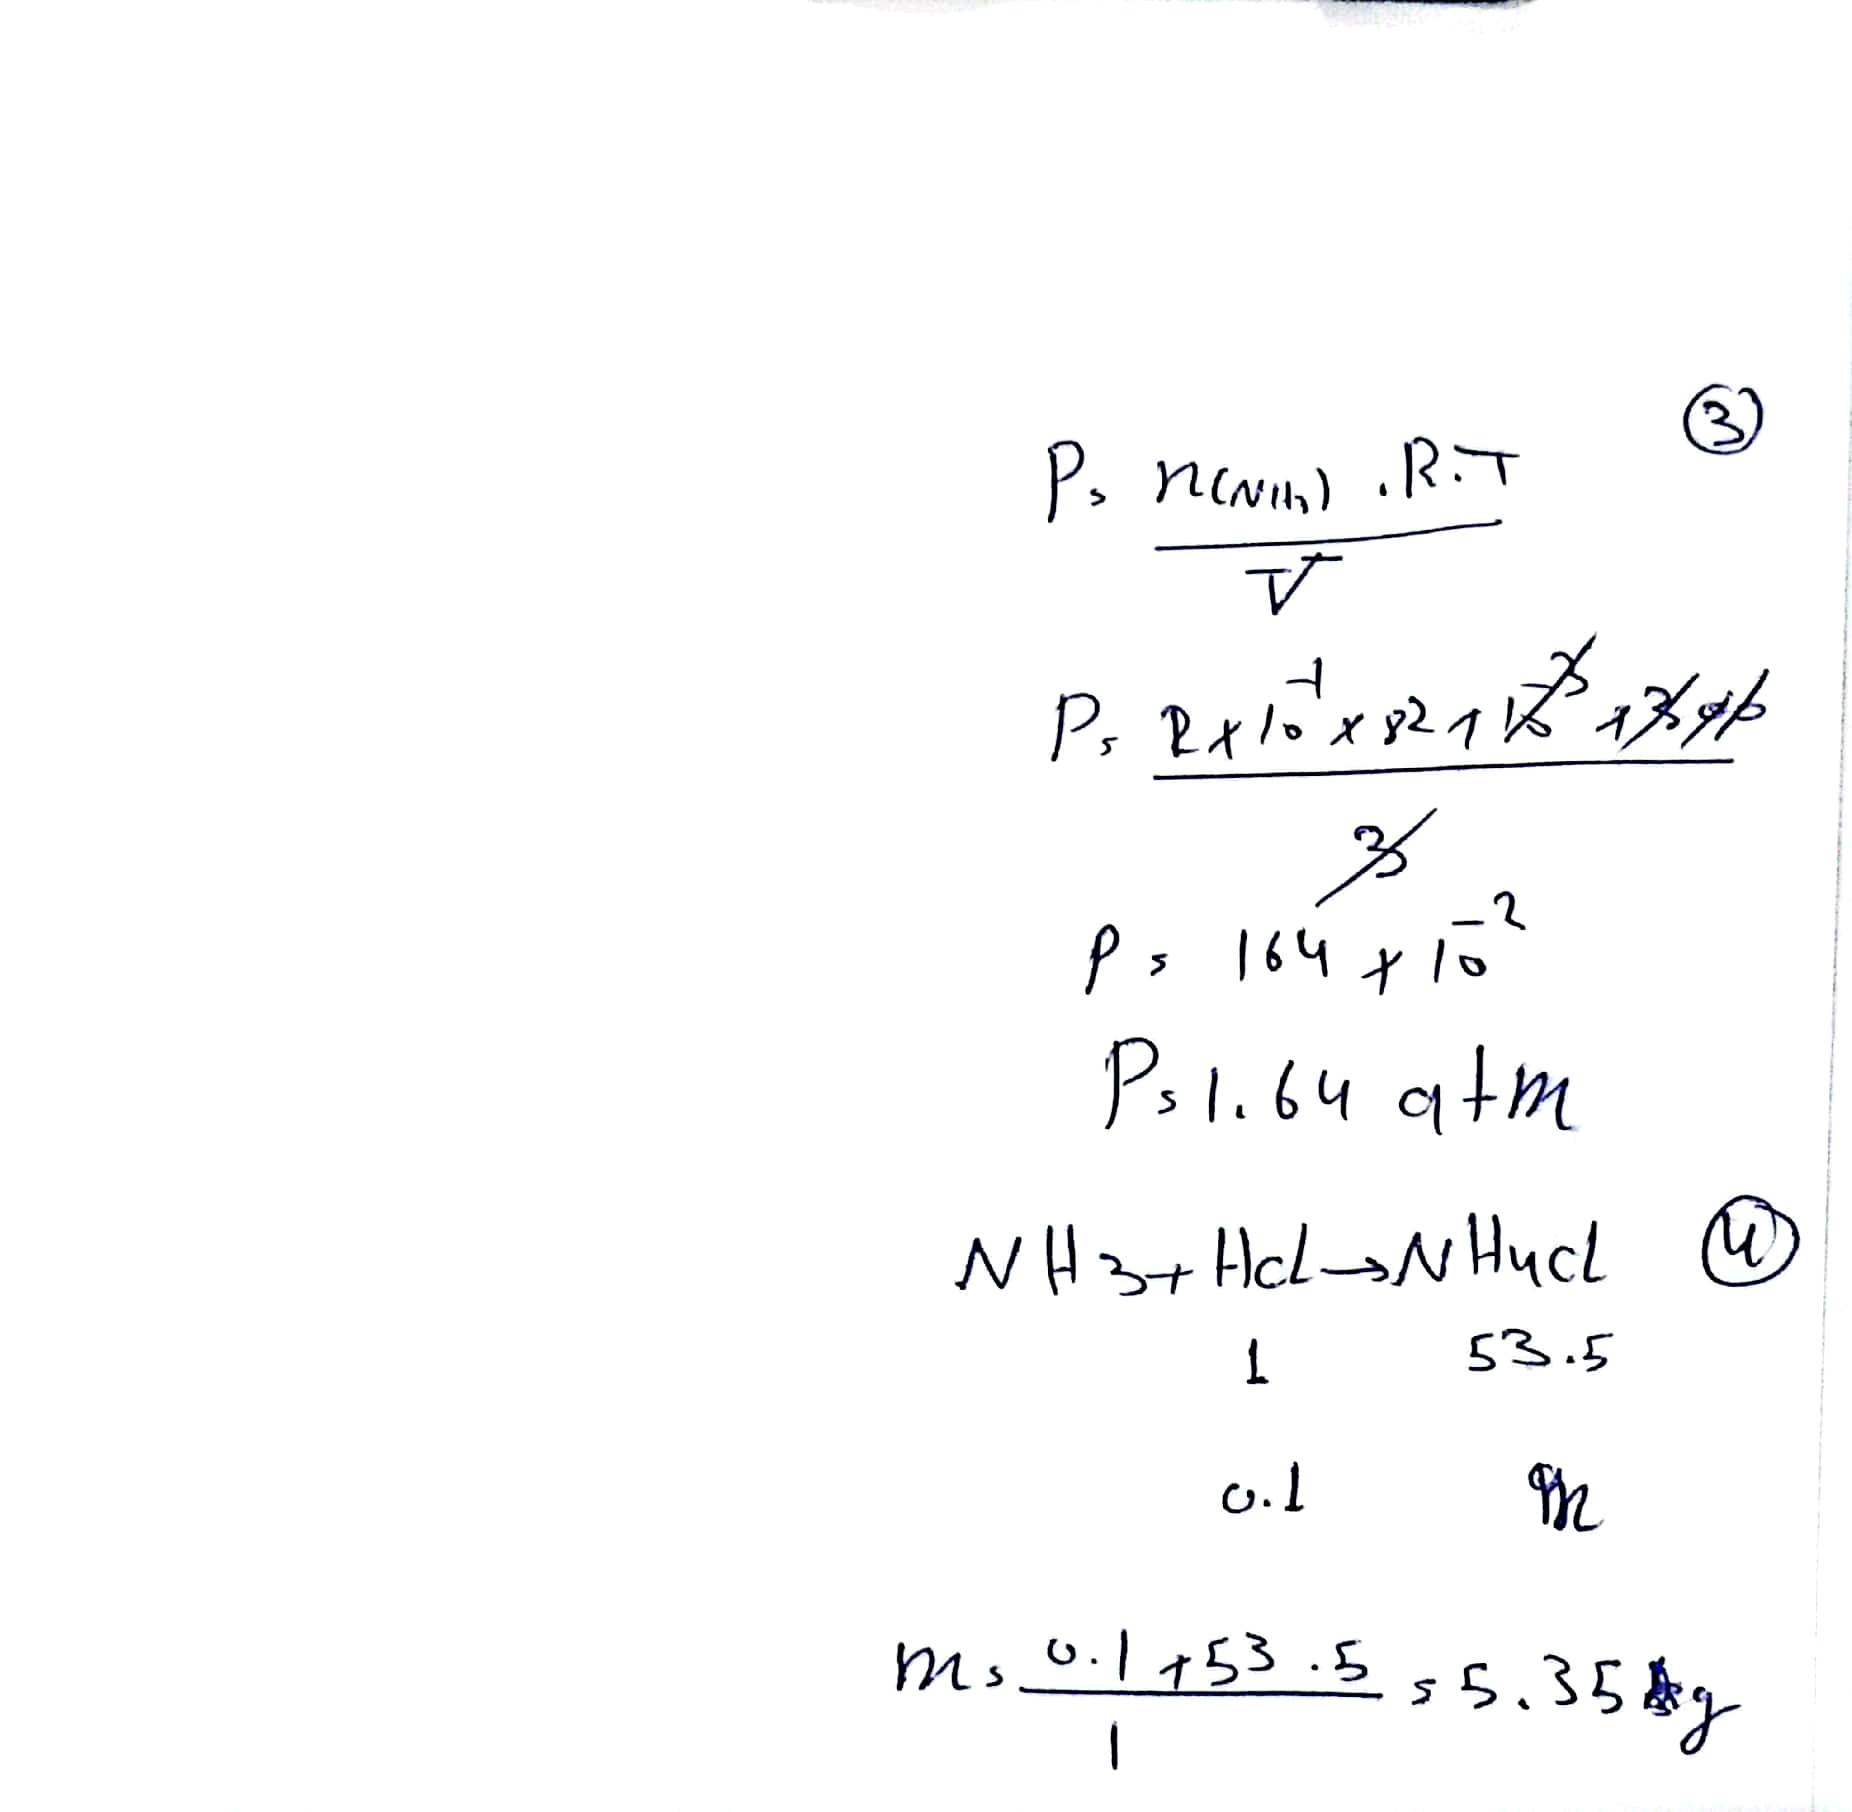 ③
P = n(NH3) . R.T
V
P = 2 × 10^-1 × 82 × 10^-3 × 300
3
P = 164 × 10^-2
P = 1.64 atm
NH3 + Hcl → NH4cl ④
1 53.5
0.1 m
m = 0.1 × 53.5 = 5.35 g
1